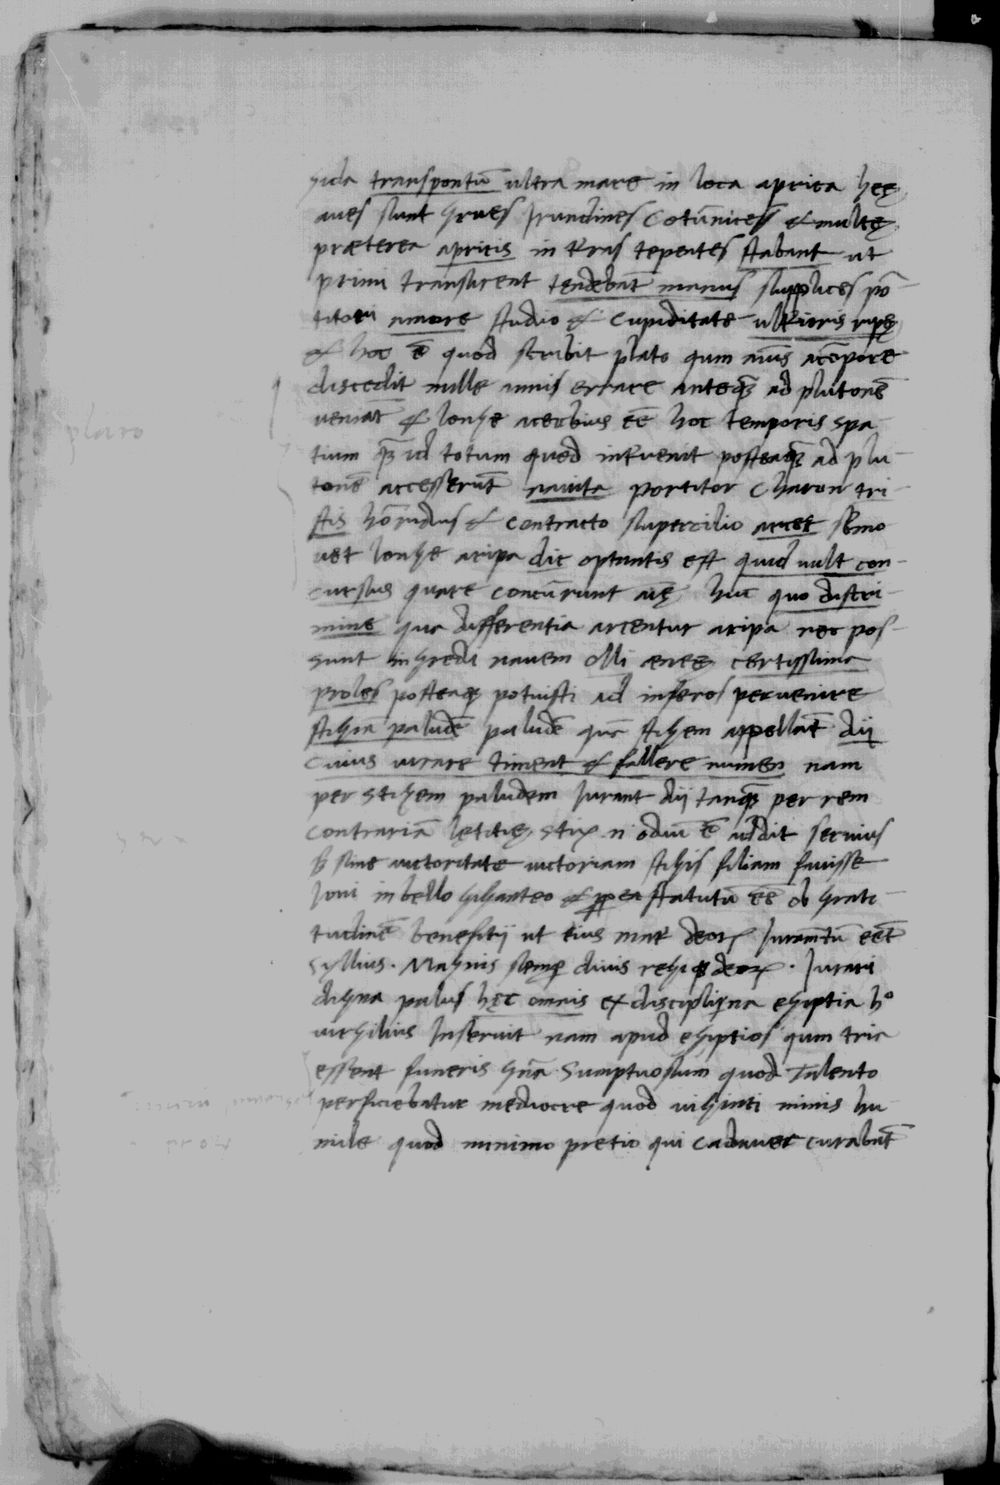 gida transpontū ultra mare in loca aprica hęę
aues sunt grues hirundines Coturnices & multę
præterea apricis in terras tepentes stabant ut
primi transirent tendebāt manus supplices por-
titori amore studio & cupiditate ulterioris ripę
& hoc ē quod scribit plato qum aīus a corpore
discedit mille annis errare anteq̄ ad plutonē
plato
ueniāt & longe acerbius eē hoc temporis spa
tium q̄ id totum quod interuenit posteaq̄ ad plu-
tonē accesserūt nauita portitor Charon tri-
stis horridus & contracto supercilio arcet semo
uet longe a ripa dic optantis est quid uult con-
cursus quare concurrunt aīę huc quo discri-
mine qua differentia arcentur a ripa nec pos-
sunt ingredi nauem olli æneę certissima
proles posteaq̄ potuisti ad inferos peruenire
stigia paludē paludē quā stigem appellāt dii
cuius iurare timent & fallere numen nam
per stigem paludem Iurant dij tanq̄ per rem
contrariā lętitię stix n odiū ē addit seruius
sine auctoritate uictoriam stigis filiam fauisse
Ioui in bello giganteo & ppea statutū eē ob grati-
tudinē benefitij ut eius mater deorum Iuramtū eēt
Syllius. Magnis semp diuis regiq deorum. Iurari
digna palus hęc omnis ex disciplina egiptia ho
uirgilius Inseruit nam apud egiptios qum tria
essent funeris gña Sumptuosum quod Talento
perficiebatur mediocre quod uiginti minis hu
mile quod minimo pretio qui cadauer curabāt